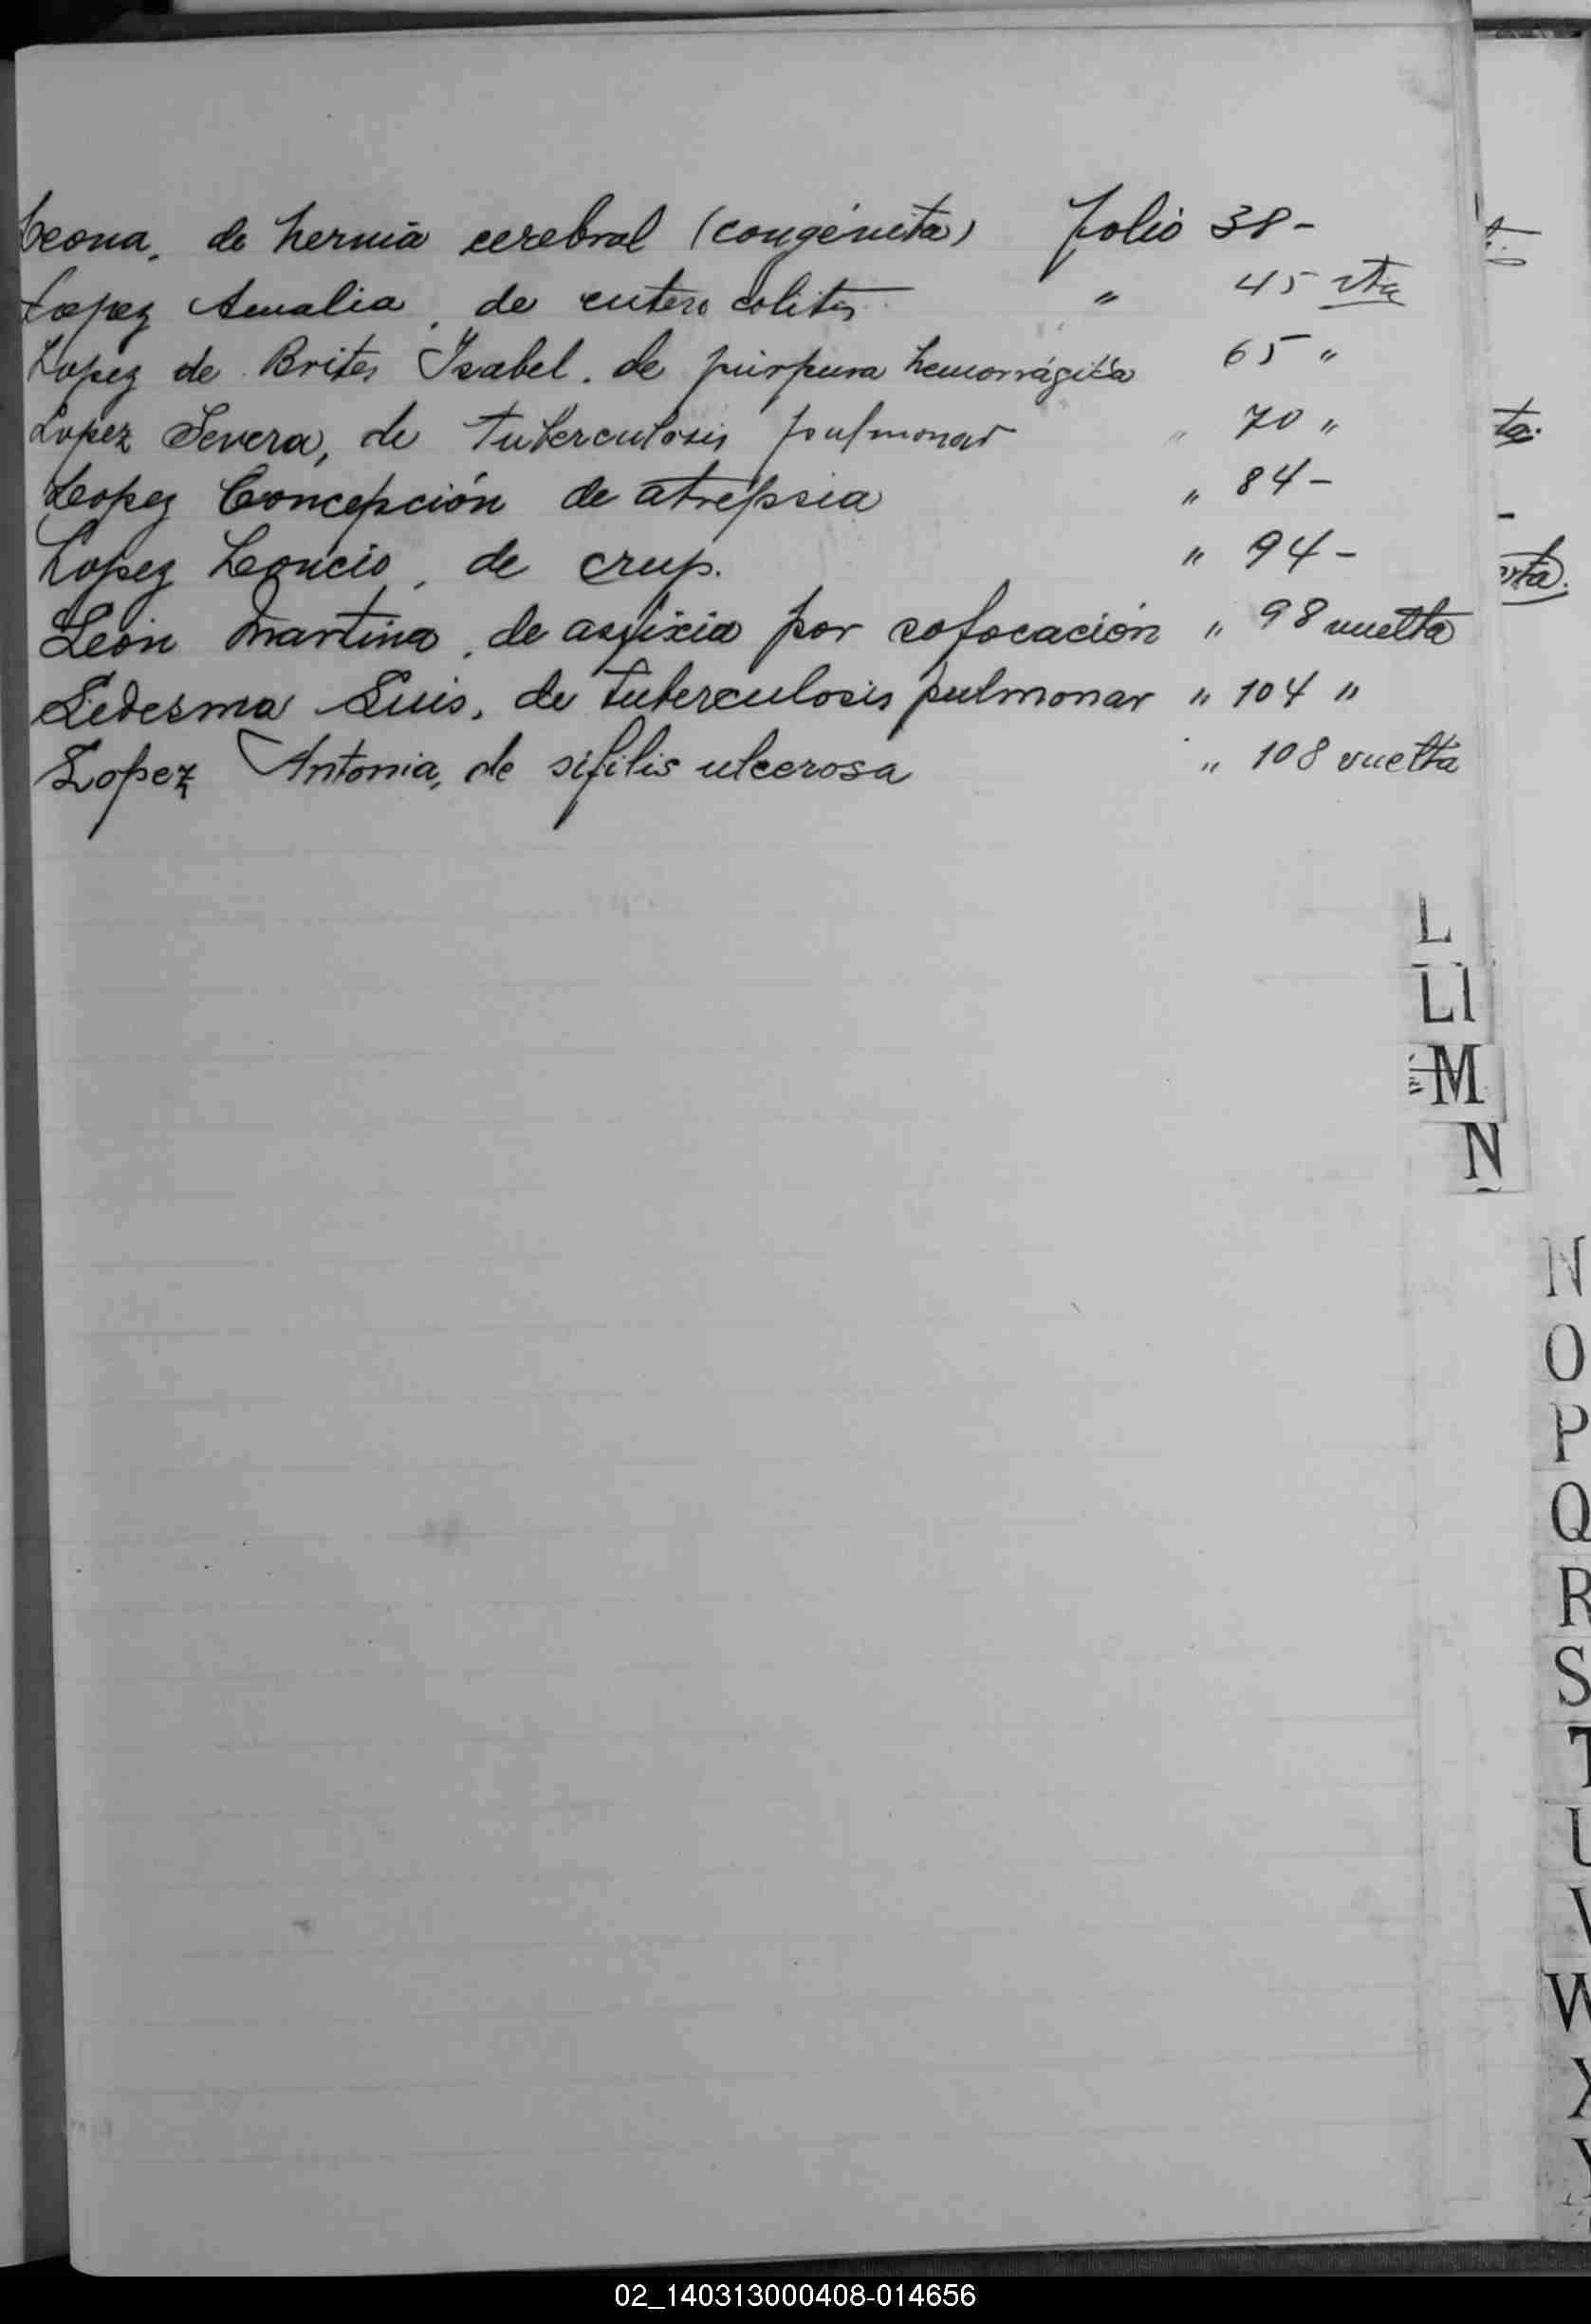 Leona, de hernia cerebral (congénita) folio 38-
Lopez Amalia, de entero colitis " 45 vta
Lopez de Brites Isabel. de púrpura hemorrágica 65 "
Lopez Severa, de tuberculosis pulmonar " 70 "
Lopez Concepción de atrepsia " 84-
Lopez Leoncio, de crup. " 94-
León Martina, de asfixia por sofocación " 98 vuelta
Ledesma Luis, de tuberculosis pulmonar " 104 "
Lopez Antonia, de sífilis ulcerosa " 108 vuelta
ta.
vta.
L
Ll
M
N
N
O
P
Q
R
S
T
U
V
W
X
Y
02_140313000408-014656